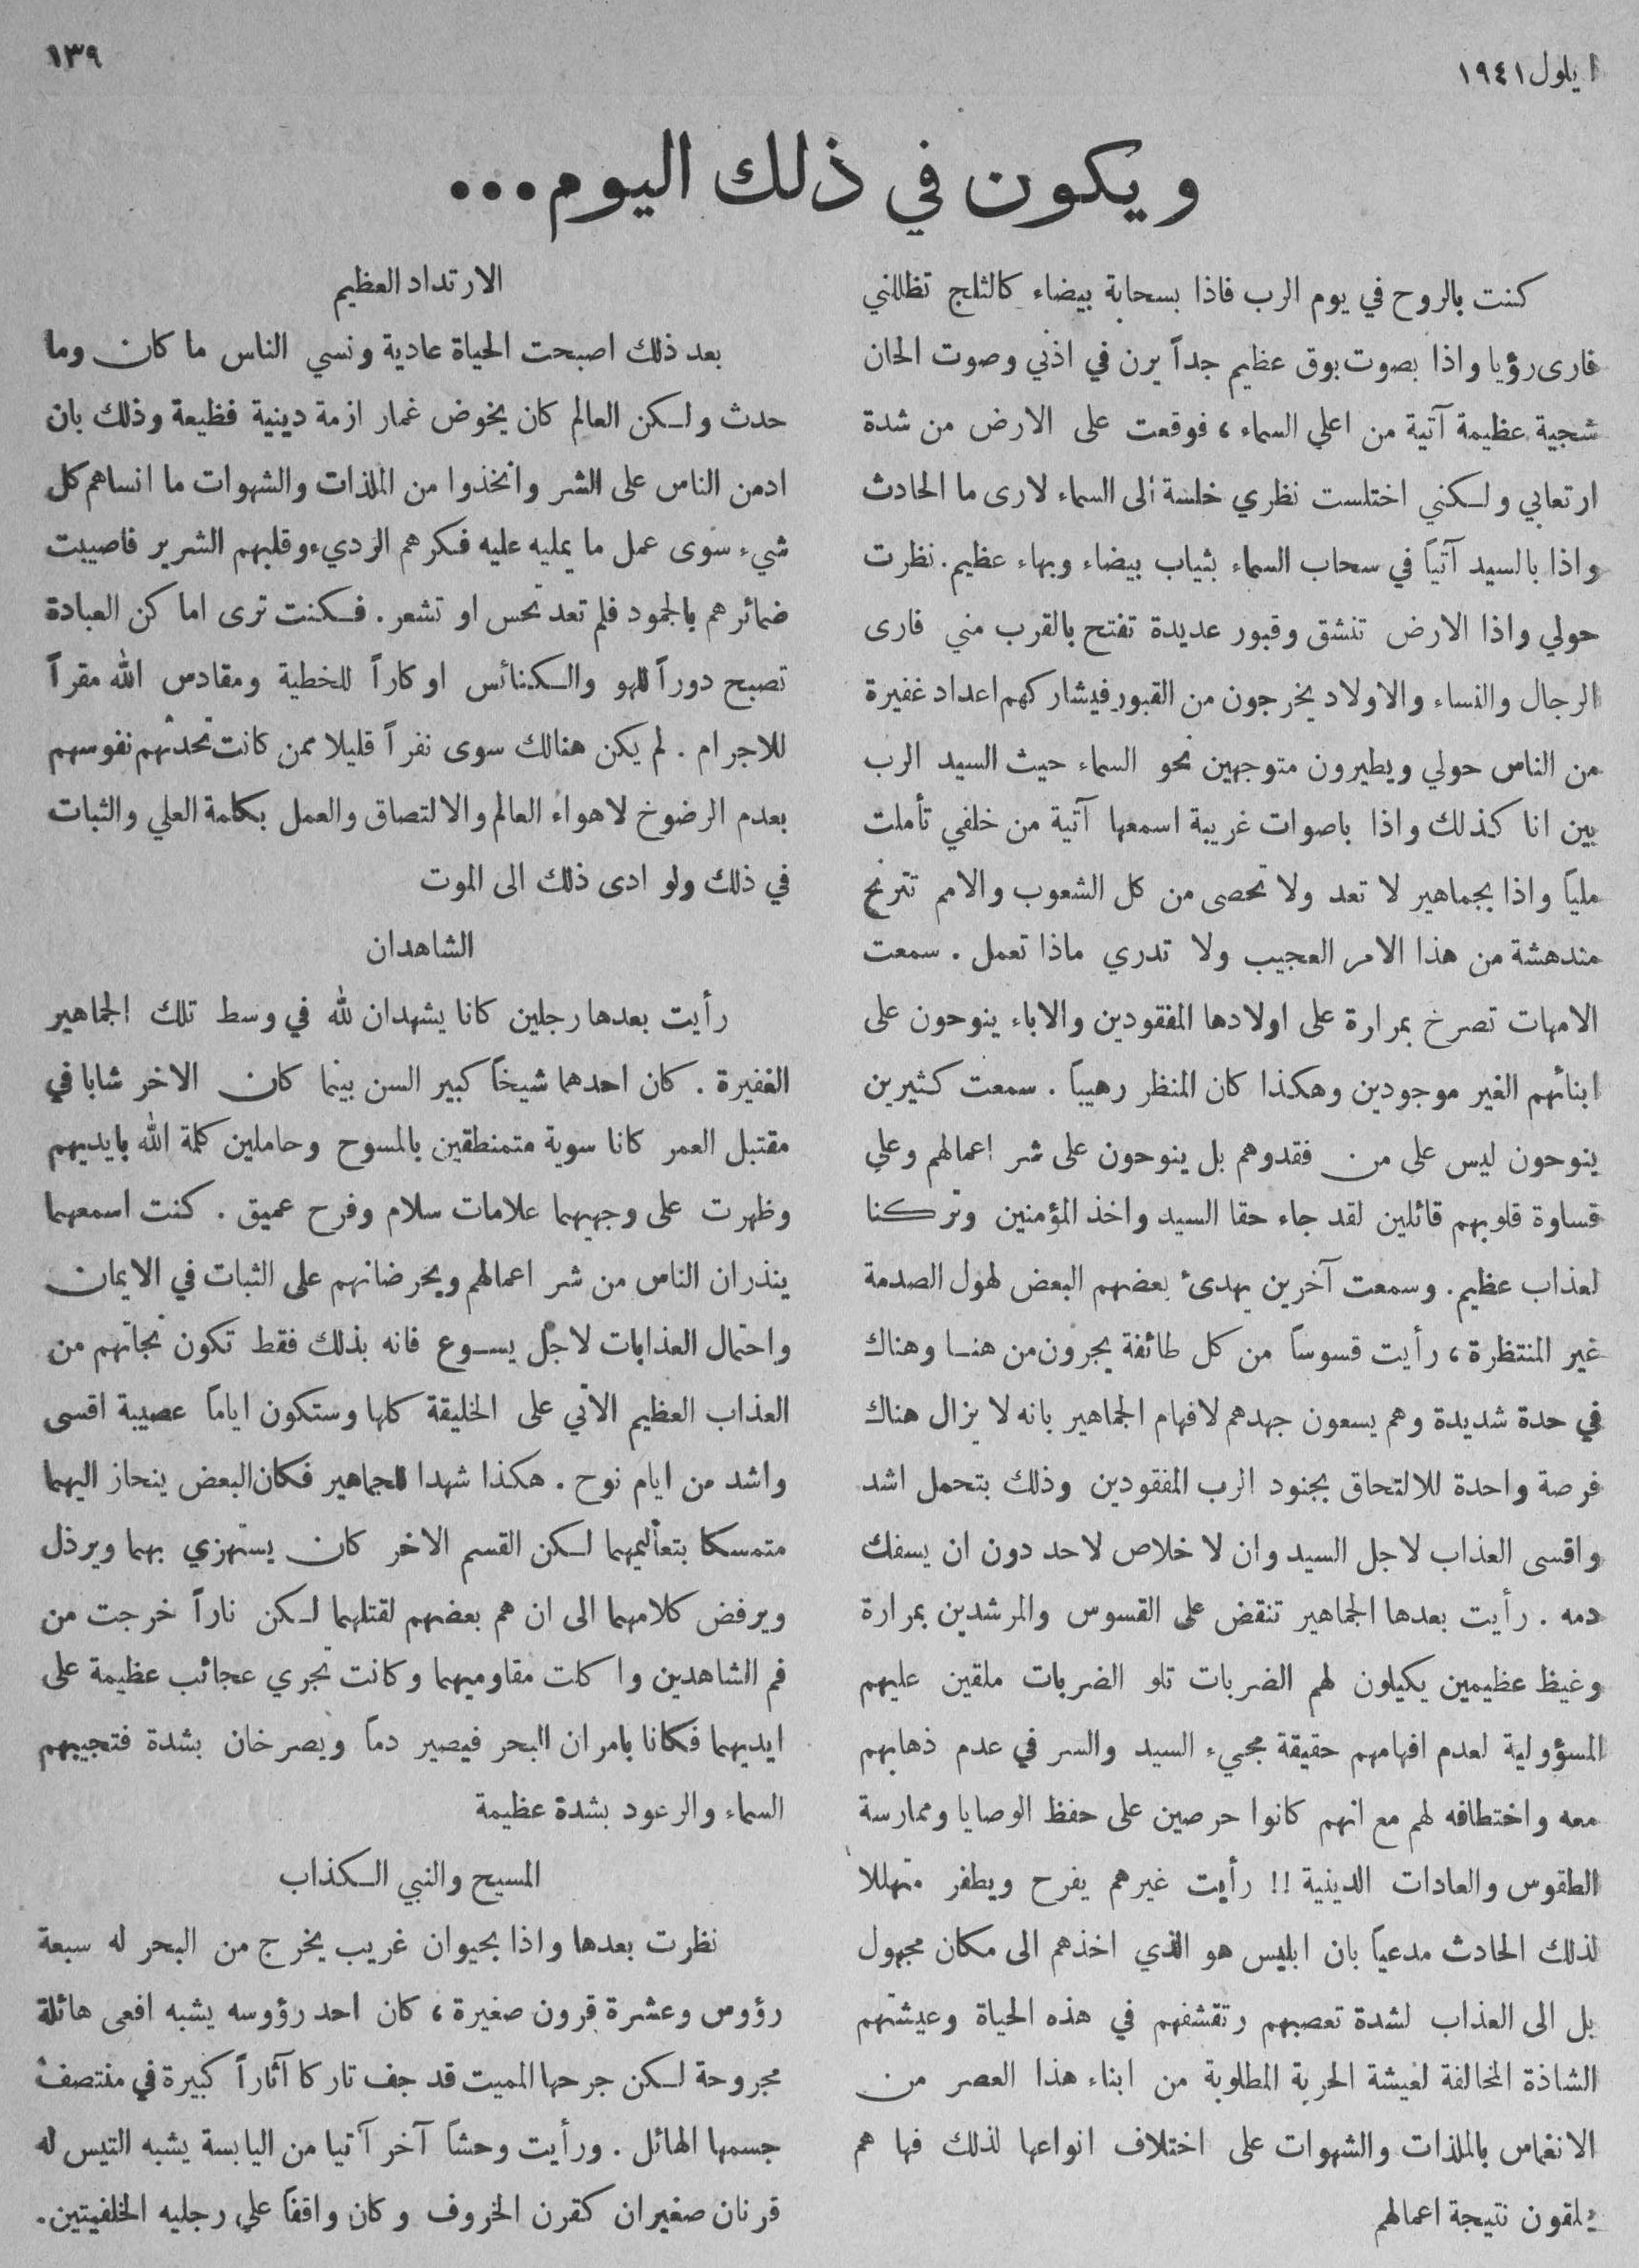 ايلول ١٩٤١
١٣٩
ويكون في ذلك اليوم...
كنت بالروح في يوم الرب فاذا بسحابة بيضاء كالثلج تظللني
فارى رؤيا واذا بصوت بوق عظيم جداً يرن في اذني وصوت الحان
شجية عظيمة آتية من اعلي السماء ، فوقعت على الارض من شدة
ارتعابي ولكني اختلست نظري خلسة الى السماء لارى ما الحادث
واذا بالسيد آتياً في سحاب السماء بثياب بيضاء وبهاء عظيم. نظرت
حولي واذا الارض تنشق وقبور عديدة تفتح بالقرب مني فارى
الرجال والنساء والاولاد يخرجون من القبور فيشاركهم اعداد غفيرة
من الناس حولي ويطيرون متوجهين نحو السماء حيث السيد الرب
بين انا كذلك واذا باصوات غريبة اسمعها آتية من خلفي تأملت
ملياً واذا بجماهير لا تعد ولا تحصى من كل الشعوب والامم تترنح
مندهشة من هذا الامر العجيب ولا تدري ماذا تعمل . سمعت
الامهات تصرخ بمرارة على اولادها المفقودين والاباء ينوحون على
ابنائهم الغير موجودين وهكذا كان المنظر رهيباً . سمعت كثيرين
ينوحون ليس على من فقدوهم بل ينوحون على شر اعمالهم وعلي
قساوة قلوبهم قائلين لقد جاء حقا السيد واخذ المؤمنين وتركنا
لعذاب عظيم. وسمعت آخرين يهدئ بعضهم البعض لهول الصدمة
غير المنتظرة ، رأيت قسوساً من كل طائفة يجرون من هنا وهناك
في حدة شديدة وهم يسعون جهدهم لافهام الجماهير بانه لا يزال هناك
فرصة واحدة للالتحاق بجنود الرب المفقودين وذلك بتحمل اشد
واقسى العذاب لاجل السيد وان لا خلاص لاحد دون ان يسفك
دمه . رأيت بعدها الجماهير تنقض على القسوس والمرشدين بمرارة
وغيظ عظيمين يكيلون لهم الضربات تلو الضربات ملقين عليهم
المسؤولية لعدم افهامهم حقيقة مجيء السيد والسر في عدم ذهابهم
معه واختطافه لهم مع انهم كانوا حرصين على حفظ الوصايا وممارسة
الطقوس والعادات الدينية !! رأيت غيرهم يفرح ويطفر متهللا
لذلك الحادث مدعياً بان ابليس هو الذي اخذهم الى مكان مجهول
بل الى العذاب لشدة تعصبهم وتقشفهم في هذه الحياة وعيشتهم
الشاذة المخالفة لعيشة الحرية المطلوبة من ابناء هذا العصر من
الانغماس بالملذات والشهوات على اختلاف انواعها لذلك فها هم
يلقون نتيجة اعمالهم
الارتداد العظيم
بعد ذلك اصبحت الحياة عادية ونسي الناس ما كان وما
حدث ولكن العالم كان يخوض غمار ازمة دينية فظيعة وذلك بان
ادمن الناس على الشر واتخذوا من الملذات والشهوات ما انساهم كل
شيء سوى عمل ما يمليه عليه فكرهم الرديء وقلبهم الشرير فاصيبت
ضمائرهم بالجمود فلم تعد تحس او تشعر . فكنت ترى اما كن العبادة
تصبح دوراً للهو والكنائس اوكاراً للخطية ومقادس الله مقراً
للاجرام . لم يكن هنالك سوى نفراً قليلا ممن كانت تحدثهم نفوسهم
بعدم الرضوخ لاهواء العالم والالتصاق والعمل بكلمة العلي والثبات
في ذلك ولو ادى ذلك الى الموت
الشاهدان
رأيت بعدها رجلين كانا يشهدان لله في وسط تلك الجماهير
الغفيرة . كان احدهما شيخاً كبير السن بينما كان الاخر شابا في
مقتبل العمر كانا سوية متمنطقين بالمسوح وحاملين كلمة الله بايديهم
وظهرت على وجهيهما علامات سلام وفرح عميق . كنت اسمعهما
ينذران الناس من شر اعمالهم ويحرضانهم على الثبات في الايمان
واحتمال العذابات لاجل يسوع فانه بذلك فقط تكون نجاتهم من
العذاب العظيم الاتي على الخليقة كلها وستكون اياماً عصيبة اقسى
واشد من ايام نوح . هكذا شهدا للجماهير فكان البعض ينحاز اليهما
متمسكا بتعاليمهما لكن القسم الاخر كان يستهزي بهما ويرذل
ويرفض كلامهما الى ان هم بعضهم لقتلهما لكن ناراً خرجت من
فم الشاهدين واكلت مقاوميهما وكانت تجري عجائب عظيمة على
ايديهما فكانا يامران البحر فيصير دماً ويصرخان بشدة فتجيبهم
السماء والرعود بشدة عظيمة
المسيح والنبي الكذاب
نظرت بعدها واذا بحيوان غريب يخرج من البحر له سبعة
رؤوس وعشرة قرون صغيرة ، كان احد رؤوسه يشبه افعى هائلة
مجروحة لكن جرحها المميت قد جف تاركا آثاراً كبيرة في منتصف
جسمها الهائل . ورأيت وحشاً آخر آتيا من اليابسة يشبه التيس له
قرنان صغيران كقرن الخروف وكان واقفاً علي رجليه الخلفيتين.